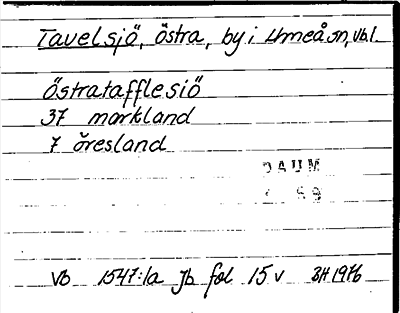 Tavelsjö, östra, by i Umeå sn, Vb l.
östratafflesiö
37 markland
7 öresland
DAUM
Vb 1547:1a Jb fol 15 v BH 1976